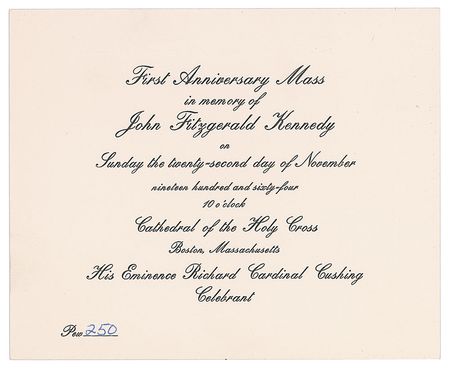 First Anniversary Mass
in memory of
John Fitzgerald Kennedy
on
Sunday the twenty-second day of November
nineteen hundred and sixty-four
10 o'clock
Cathedral of the Holy Cross
Boston, Massachusetts
His Eminence Richard Cardinal Cushing
Celebrant
Pew 250